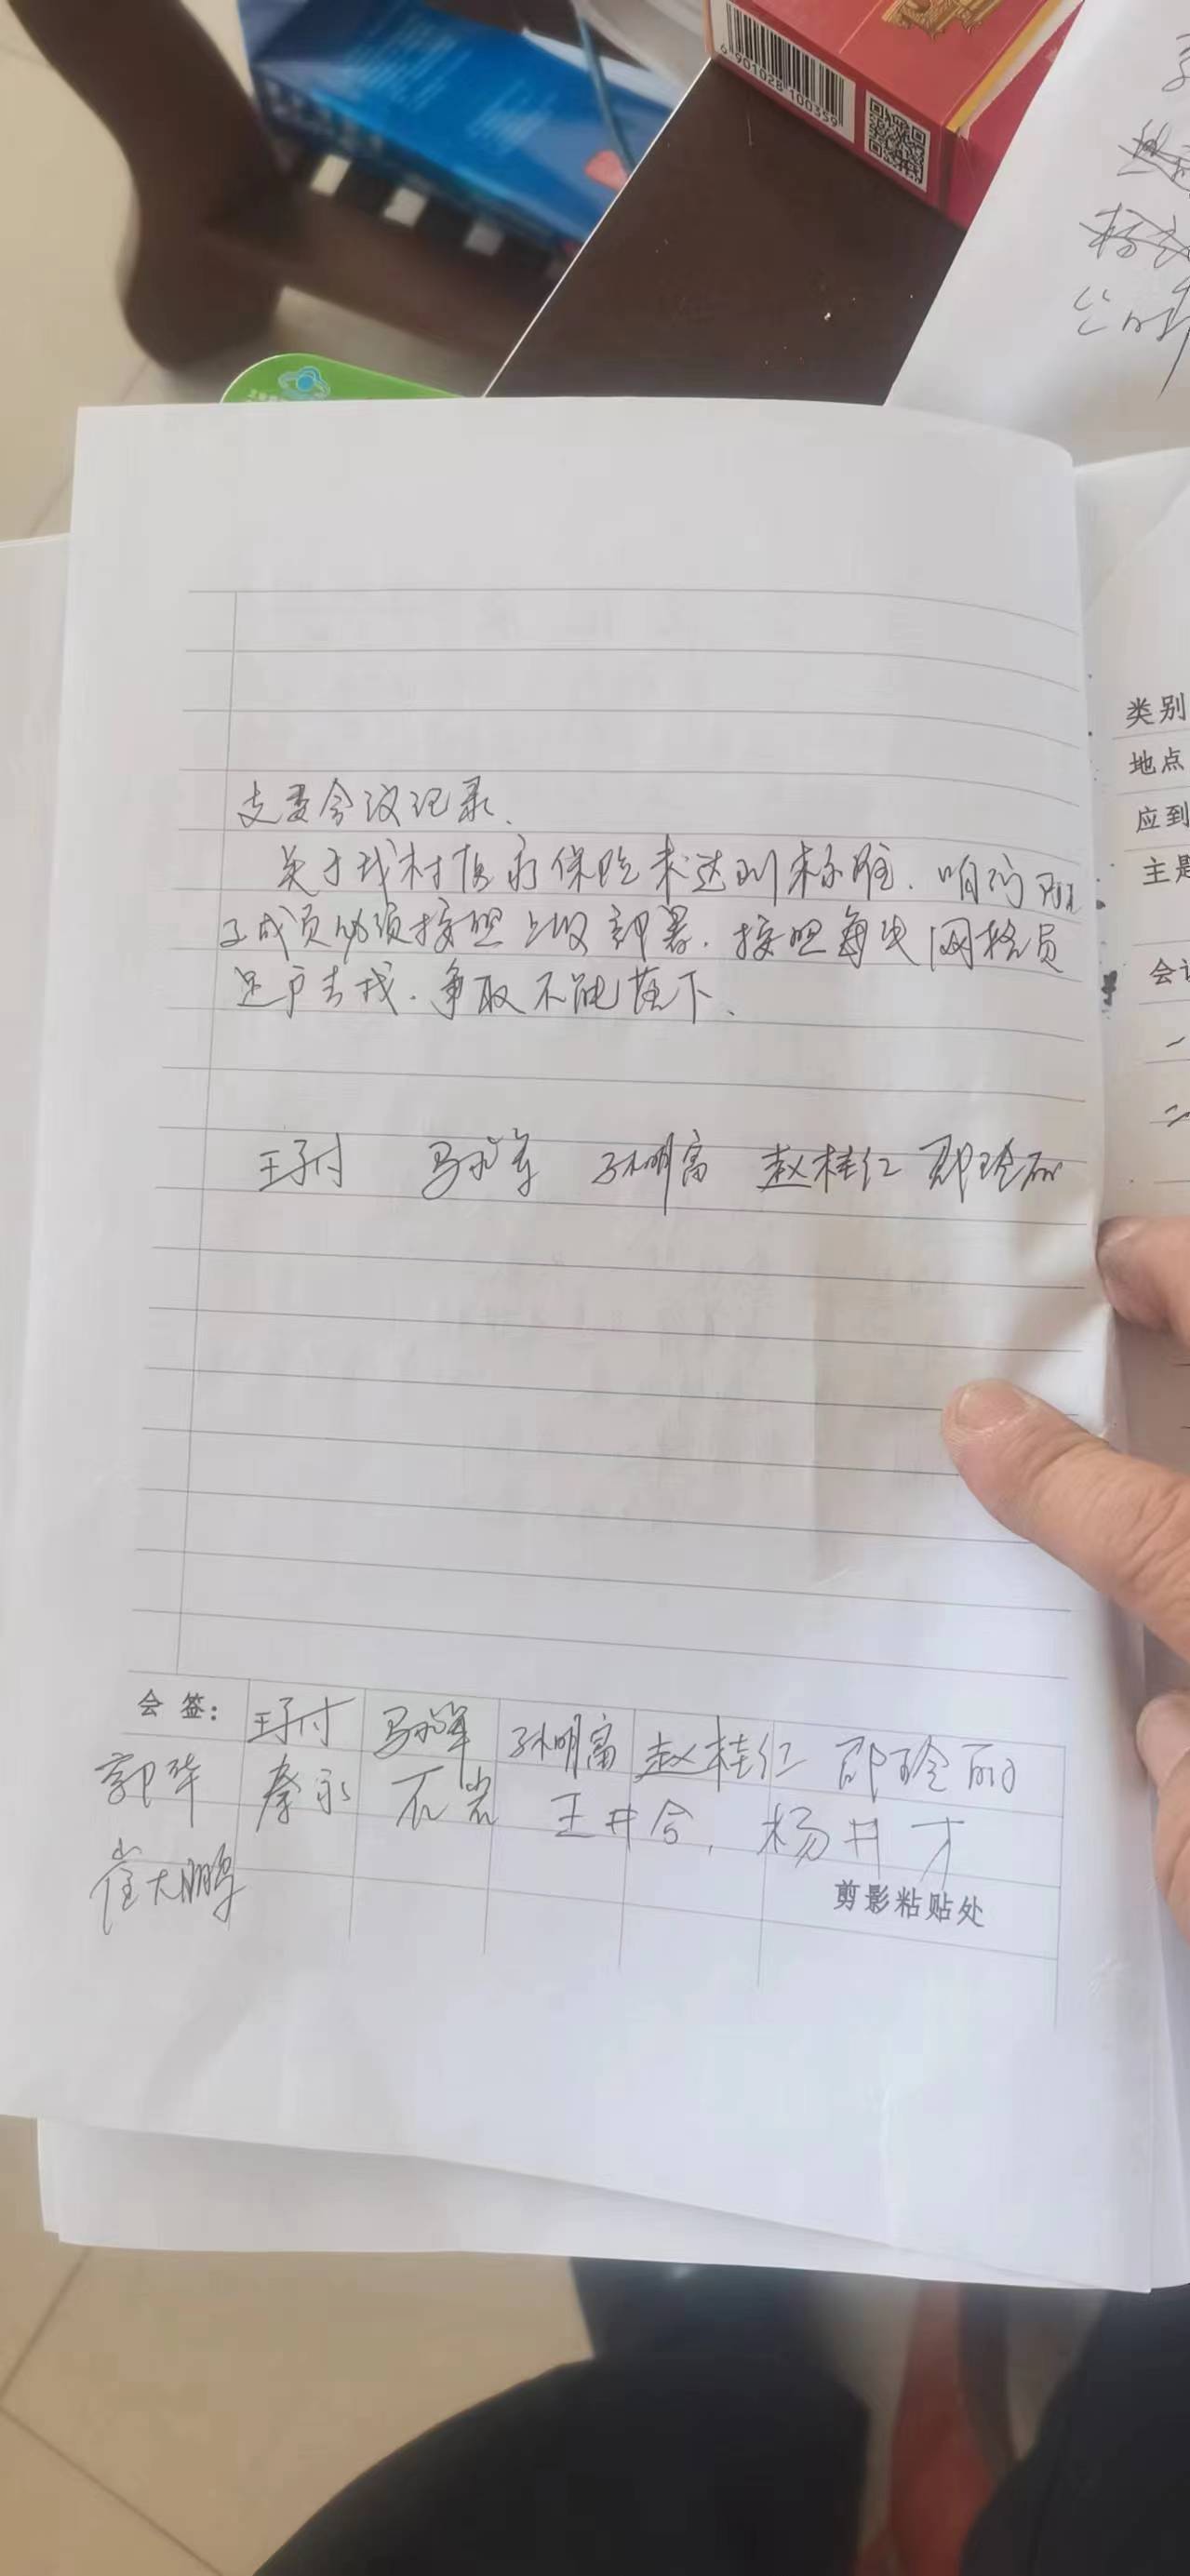 6 901028 100359
类别
地点
应到
主题
会议
支委会议记录、
关于我村医疗保险未达到标准、咱们班
子成员必须按照上级部署、按照每块网格员
逐户去找、争取不能落下、
王子付 马永军 孙明富 赵桂仁 邵玲丽
会 签: 王子付 马永军 孙明富 赵桂仁 邵玲丽
郭华 秦永 石岩 王井合, 杨井才
崔大鹏
剪影粘贴处